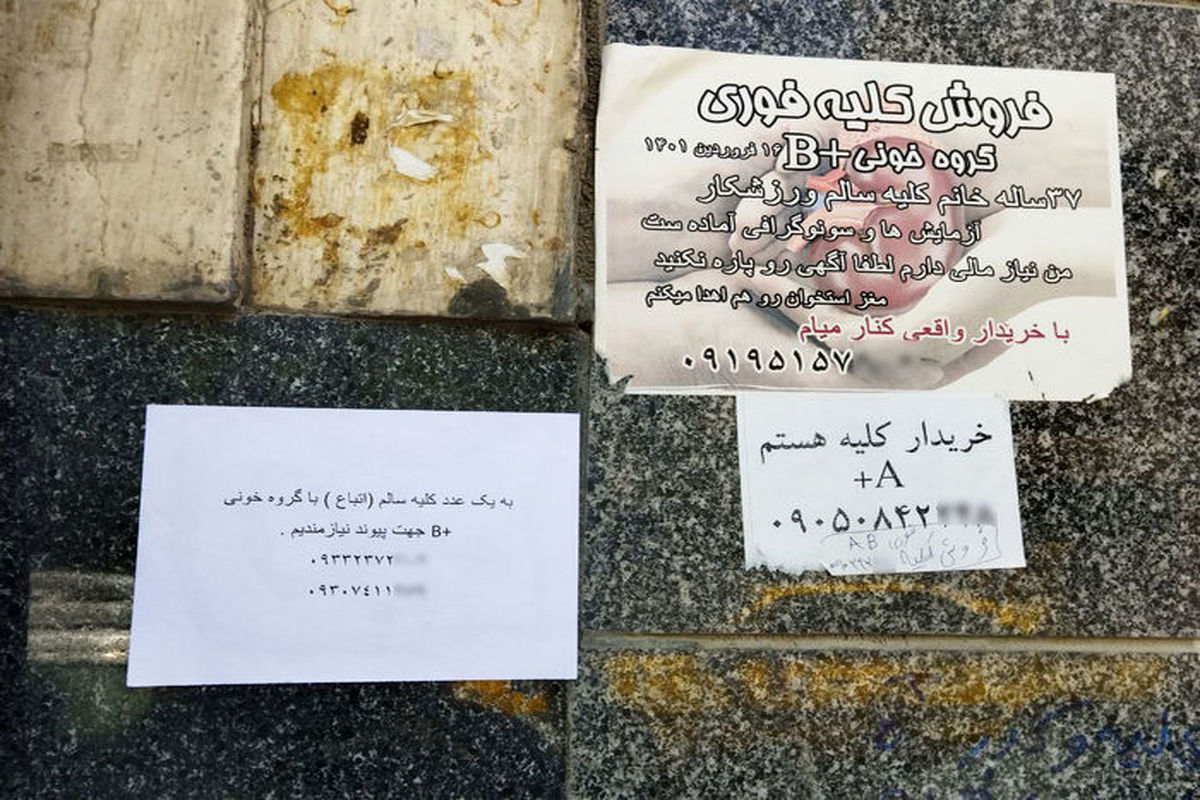 فروش کلیه فوری
گروه خونی +B ۱۶ فروردین ۱۴۰۱
۳۷ساله خانم کلیه سالم ورزشکار
آزمایش ها و سونوگرافی آماده ست
من نیاز مالی دارم لطفا آگهی رو پاره نکنید
مغز استخوان رو هم اهدا میکنم
با خریدار واقعی کنار میام
۰۹۱۹۵۱۵۷
خریدار کلیه هستم
A+
۰۹۰۵۰۸۴۲
فروش کلیه AB
به یک عدد کلیه سالم (اتباع ) با گروه خونی
B+ جهت پیوند نیازمندیم .
۰۹۳۳۲۳۷۲
۰۹۳۰۷٤۱۱